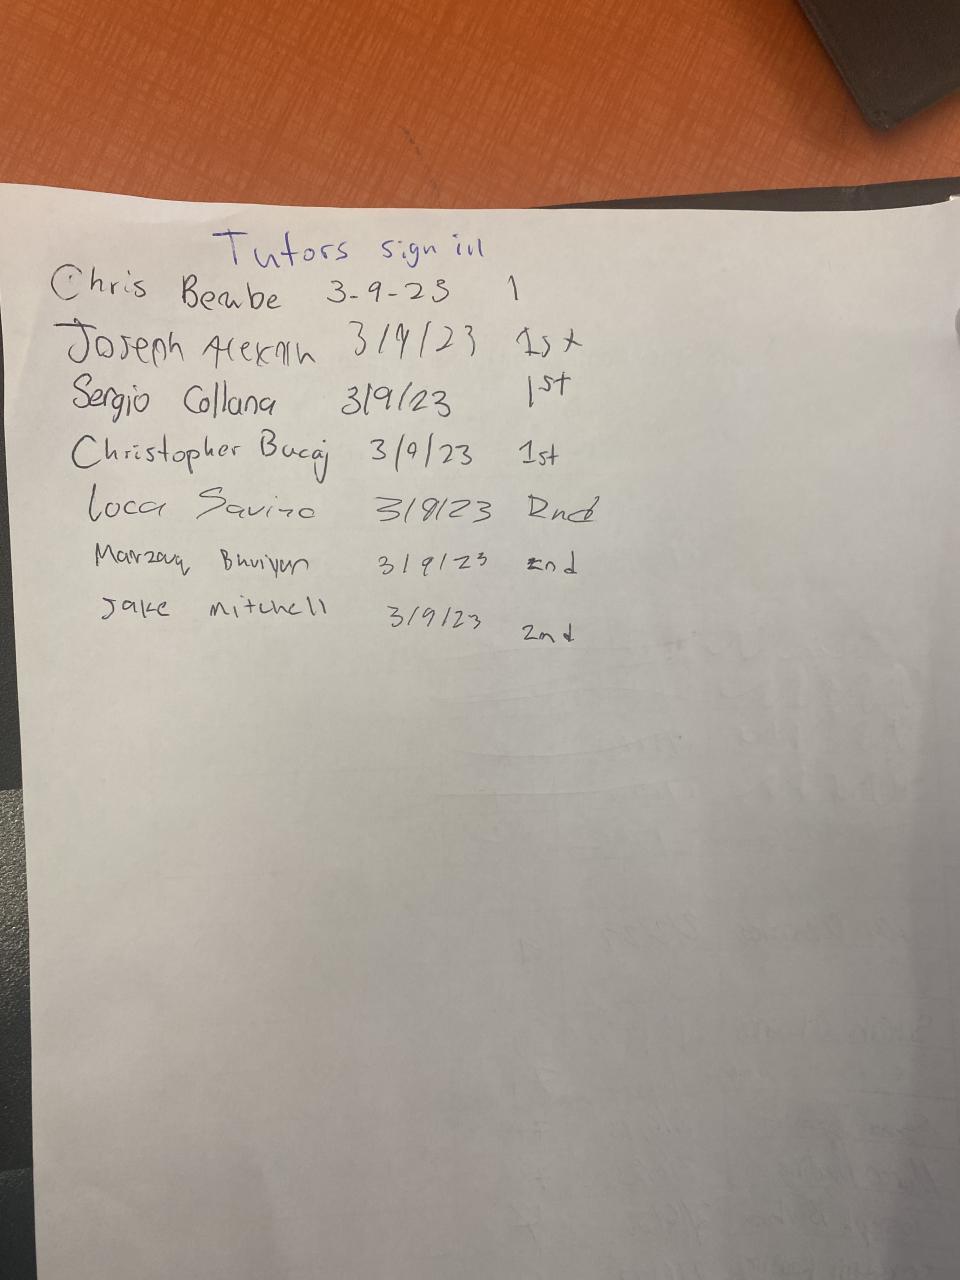 Tutors sign in
Chris 3-9-23 1
Joseph 3/9/23 1st
Sergio Collana 3/9/23 1st
Christopher Bucaj 3/9/23 1st
Loca Savino 3/9/23 2nd
3/9/23 2nd
Jake mitchell 3/9/23 2nd